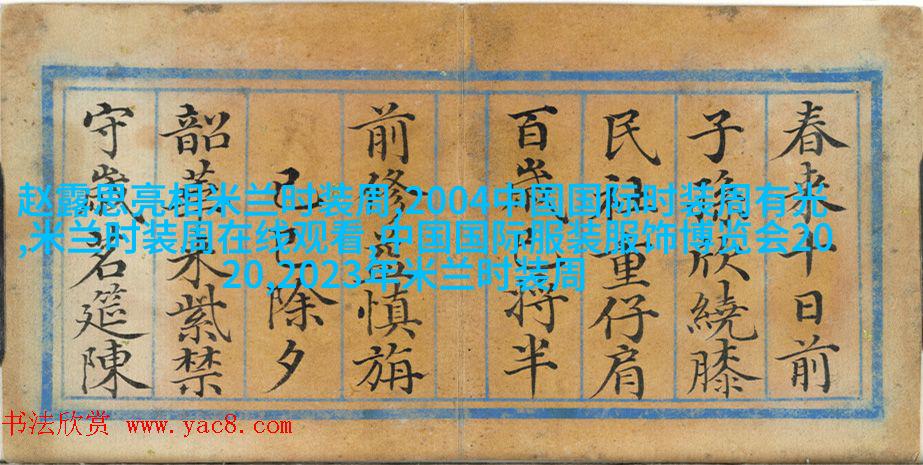 春来半日前
子孫欣繞膝
民祖重仔肩
百歲已將半
前修益慎旃
己巳除夕
韶華來紫禁
守歲茗筵陳
赵露思亮相米兰时装周,2004中国国际时装周有光
,米兰时装周在线观看,中国国际服装服饰博览会20
20,2023年米兰时装周
书法欣赏 www.yac8.com